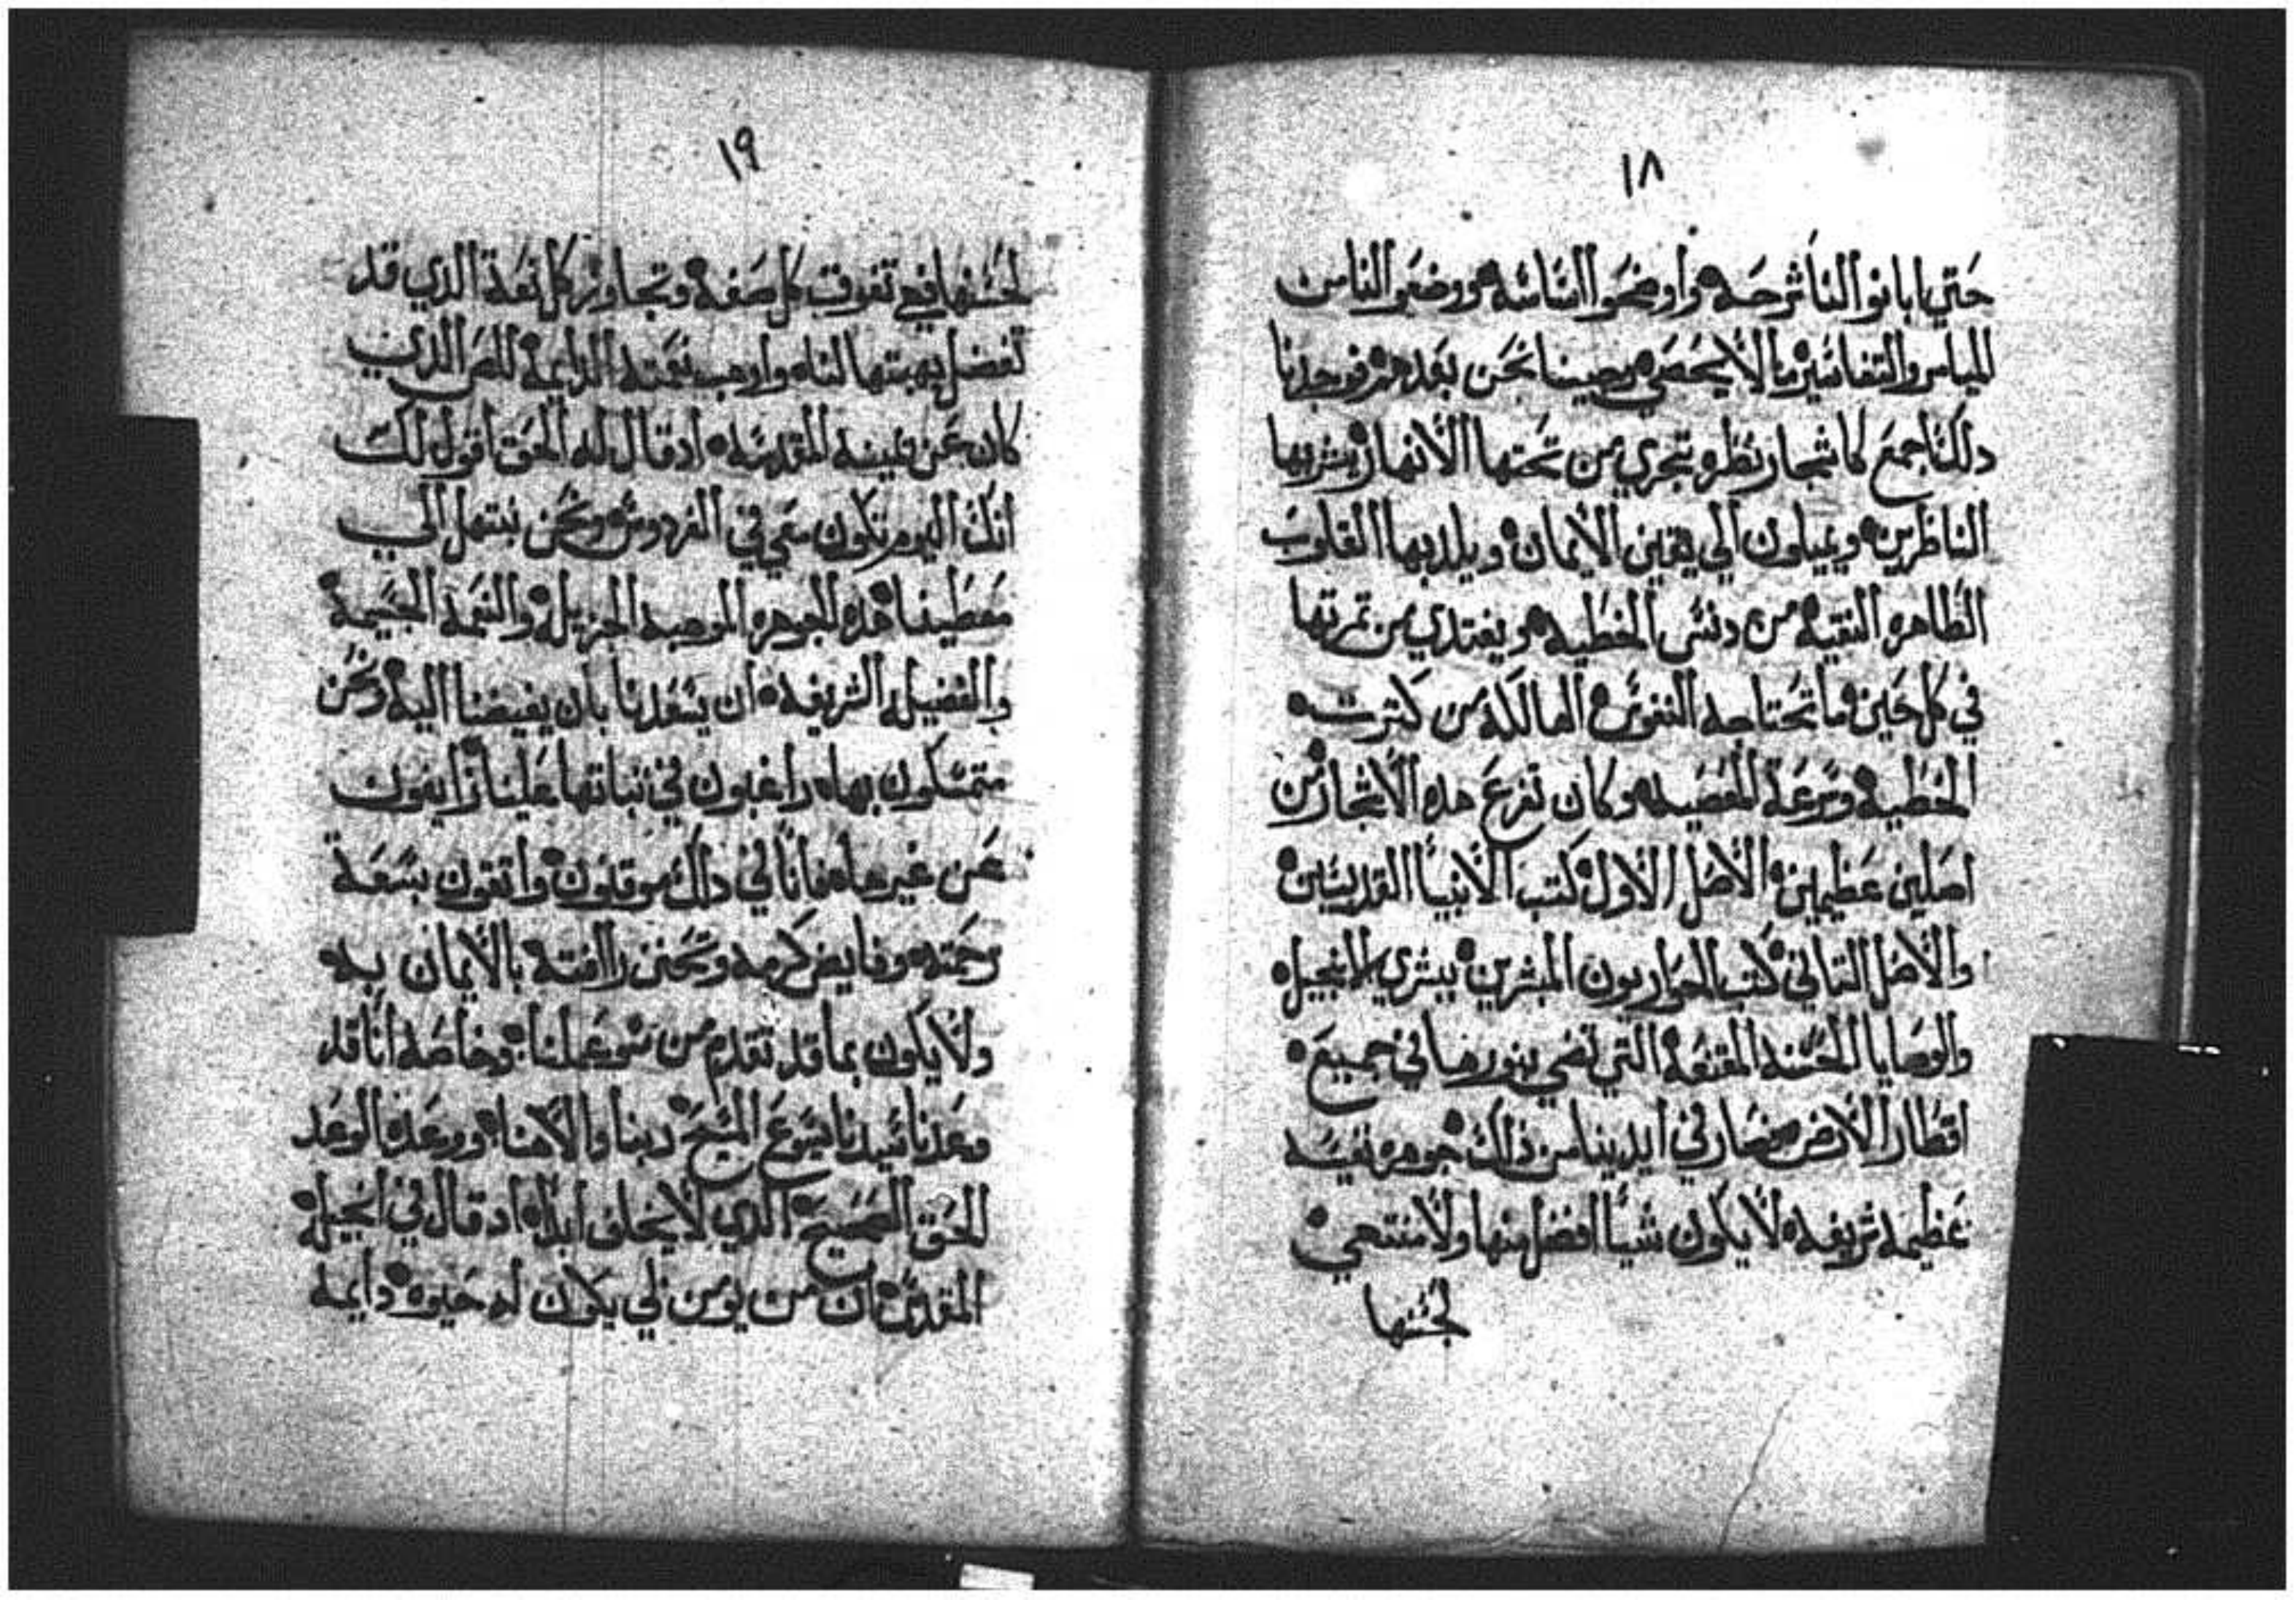 ١٨
حتي ابانوا لنا شرحه واوضحوا لنا سُنته ووضعوا لناس
الميامر والتفاسير ما لا يحصي وصينا نحن بعدهم فوجدنا
دلك اجمع كاشجار نظره تجري من تحتها الانهار يشربها
الناظرين ويميلون الي يقين الايمان ويلد بها القلوب
الطاهره النقيه من دنس الخطيه ويغتدي من تمرتها
في كل حين ما تحتاجه النفوس الهالكة من كترت
الخطية وسرعة المعصيه وكان تفرع هده الاشجار من
اصلين عظيمين الاصل الاول كتب الانبيا القديسين
والاصل التاني كتب الحواريون المبشرين ببشري الانجيل
والوصايا الحسنه المقنعة التي تضي بنورها في جميع
اقطار الارض فصار في ايدينا من ذالك جوهره نفيسه
عظيمه شريفه لا يكون شيأ افضل منها ولا منتهي
لحسنها
١٩
لحسنها فهي تفوق كل صفه وتجاوز كل نعمة الدي قد
تفضل بهبتها لنا واوهب نعمته الدايمة للص الدي
كان عن يمينه المقدسه اد قال له الحق اقول لك
انك اليوم تكون معي في الفردوس ونحن نبتهل الي
معطينا هده الجوهره الموهبه الجزيله والنعمة الجسيمة
والفضيله الشريفه ان يسعدنا بان يفيضنا اليه ونحن
متمسكون بها راغبون في نباتها علينا زايفون
عن غيرها فاننا في دالك موقنون واتقون بسعة
رحمته وفايض كرمه وتحنن راافته بالايمان به
ولا يكون بما قد تقدم من سو عملنا وخاصه اننا قد
وعدنا سيدنا يسوع المسيح ربنا والاهنا ووعده الوعد
الحق الصحيح الدي لا يخلف ابدا اد قال في انجيله
المقدس ان من يومن لي يكون له حيوه دايمه